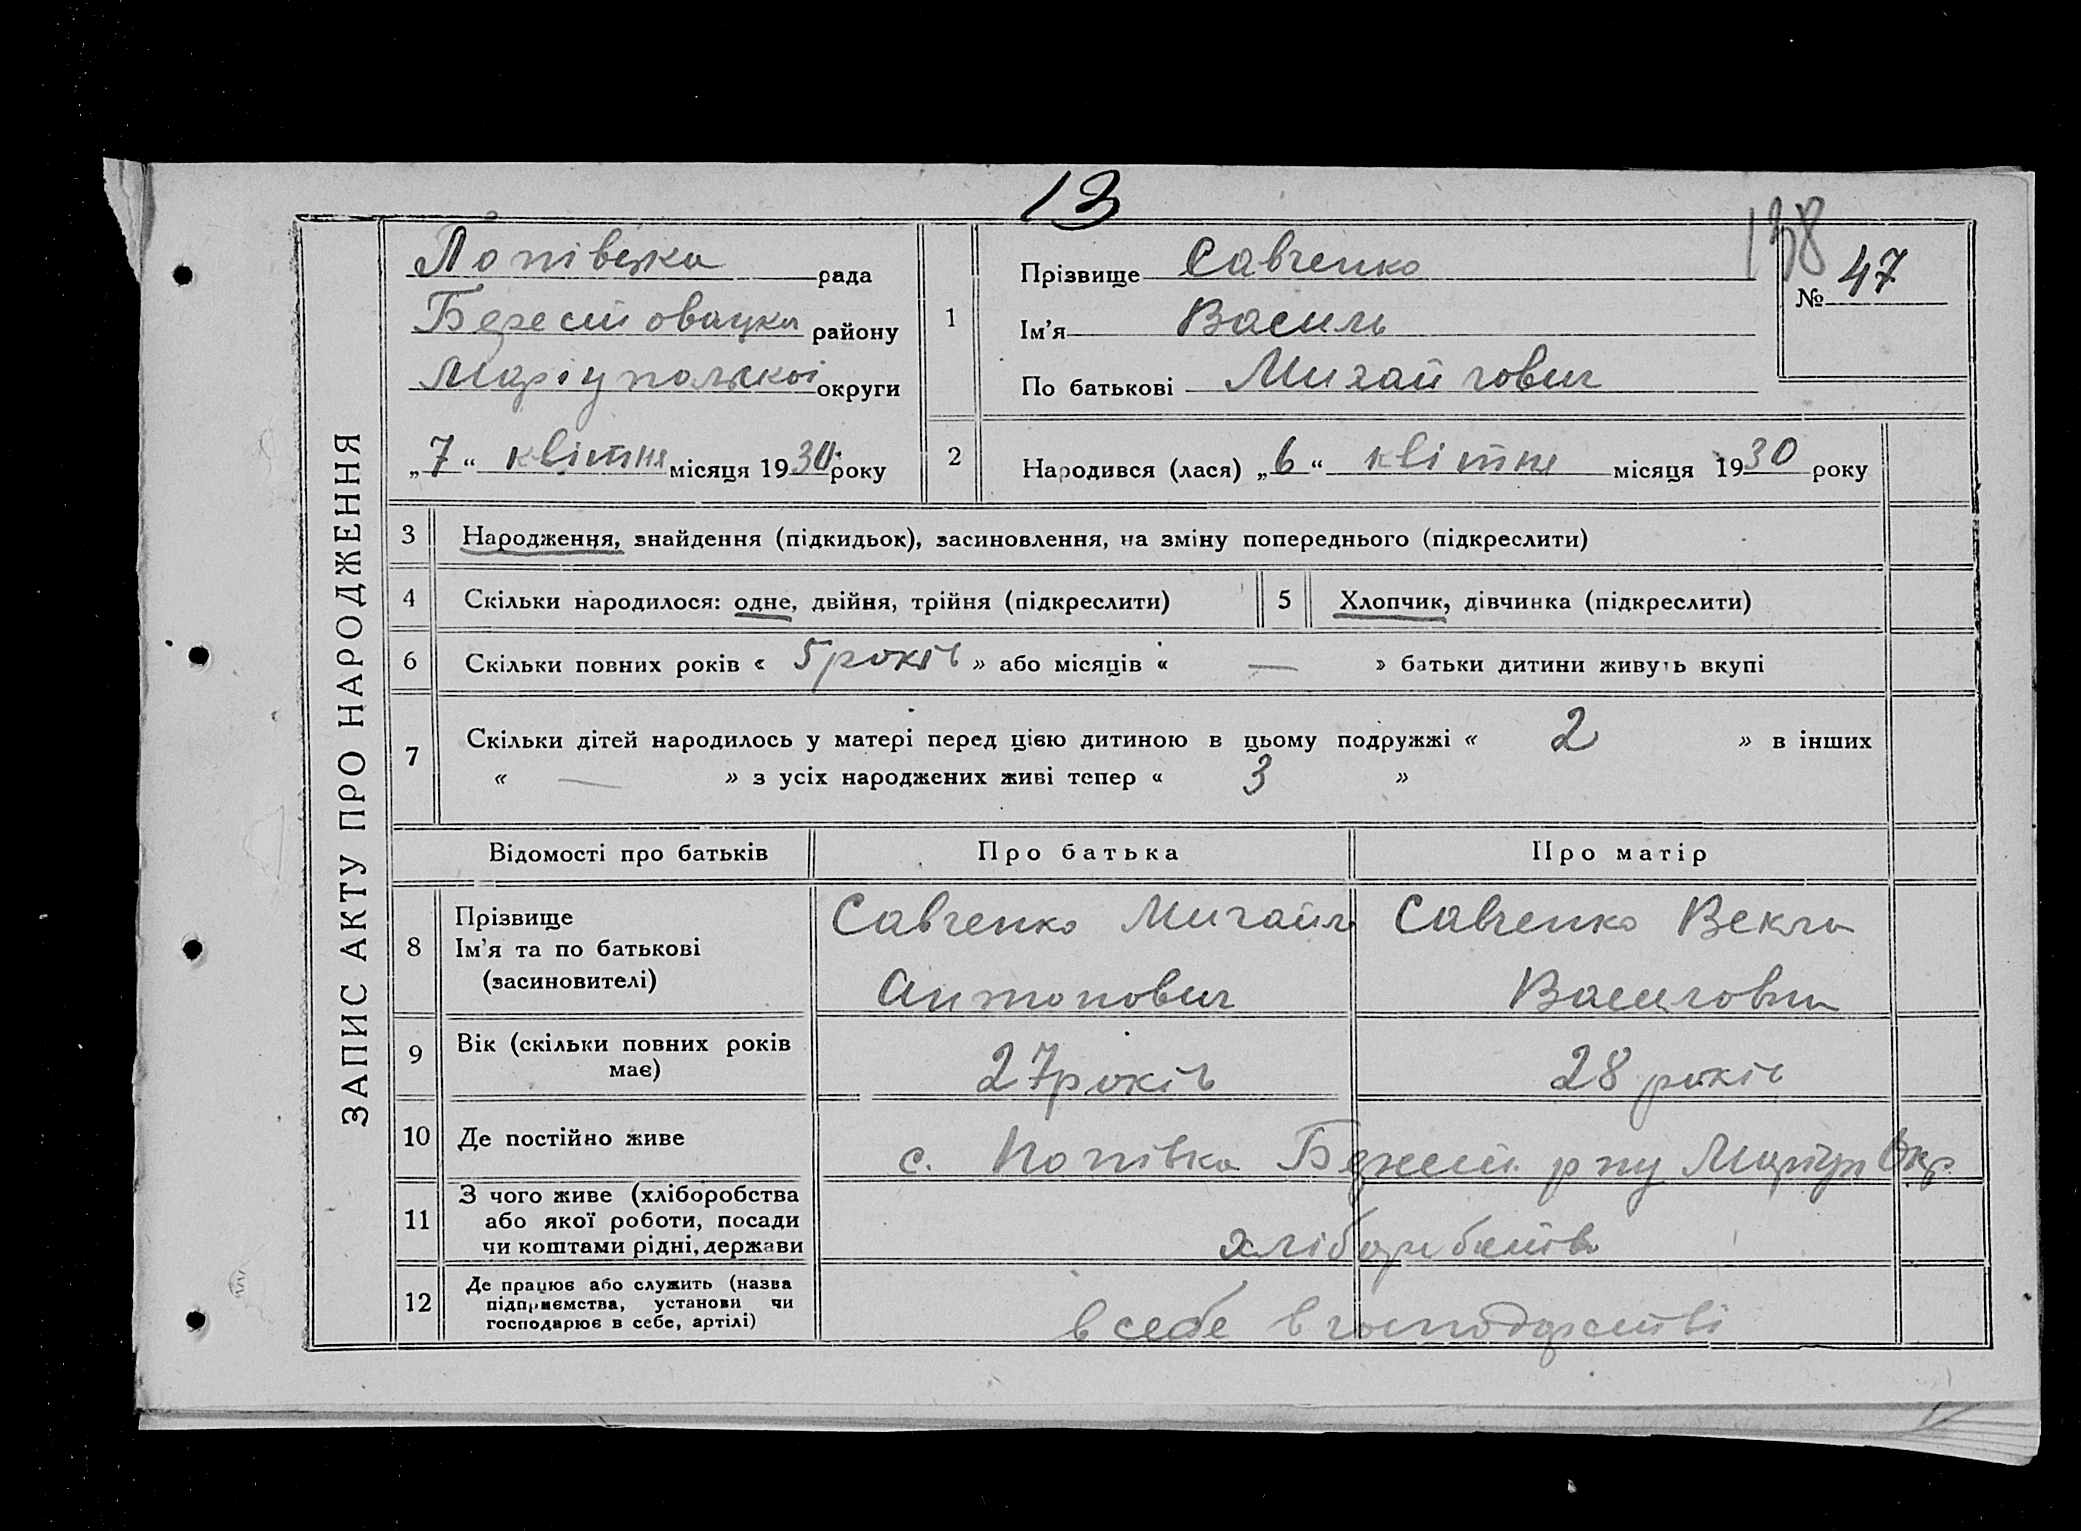 13
138
ЗАПИС АКТУ ПРО НАРОДЖЕННЯ
Попівська рада
Берестовацьк району
Маріупольської округи
„7“ квітня місяця 1930 року
1
Прізвище Савченко
Ім’я Василь
По батькові Михайлович
№ 47
2
Народився (лася) „6“ квітня місяця 1930 року
3 Народження, знайдення (підкидьок), засиновлення, на зміну попереднього (підкреслити)
4 Скільки народилося: одне, двійня, трійня (підкреслити)
5 Хлопчик, дівчинка (підкреслити)
6 Скільки повних років « 5 років » або місяців « — » батьки дитини живуть вкупі
7 Скільки дітей народилось у матері перед цією дитиною в цьому подружжі « 2 » в інших
« — » з усіх народжених живі тепер « 3 »
Відомості про батьків Про батька Про матір
8 Прізвище
Ім’я та по батькові
(засиновителі)
Савченко Михайло
Антонович
Савченко Векла
Василовна
9 Вік (скільки повних років
має)
27 років 28 років
10 Де постійно живе с. Попівка Берест. р ну Маріуп Окр.
11 З чого живе (хліборобства
або якої роботи, посади
чи коштами рідні, держави
хліборобств
12 Де працює або служить (назва
підприємства, установи чи
господарює в себе, артілі)
в себе в господарстві